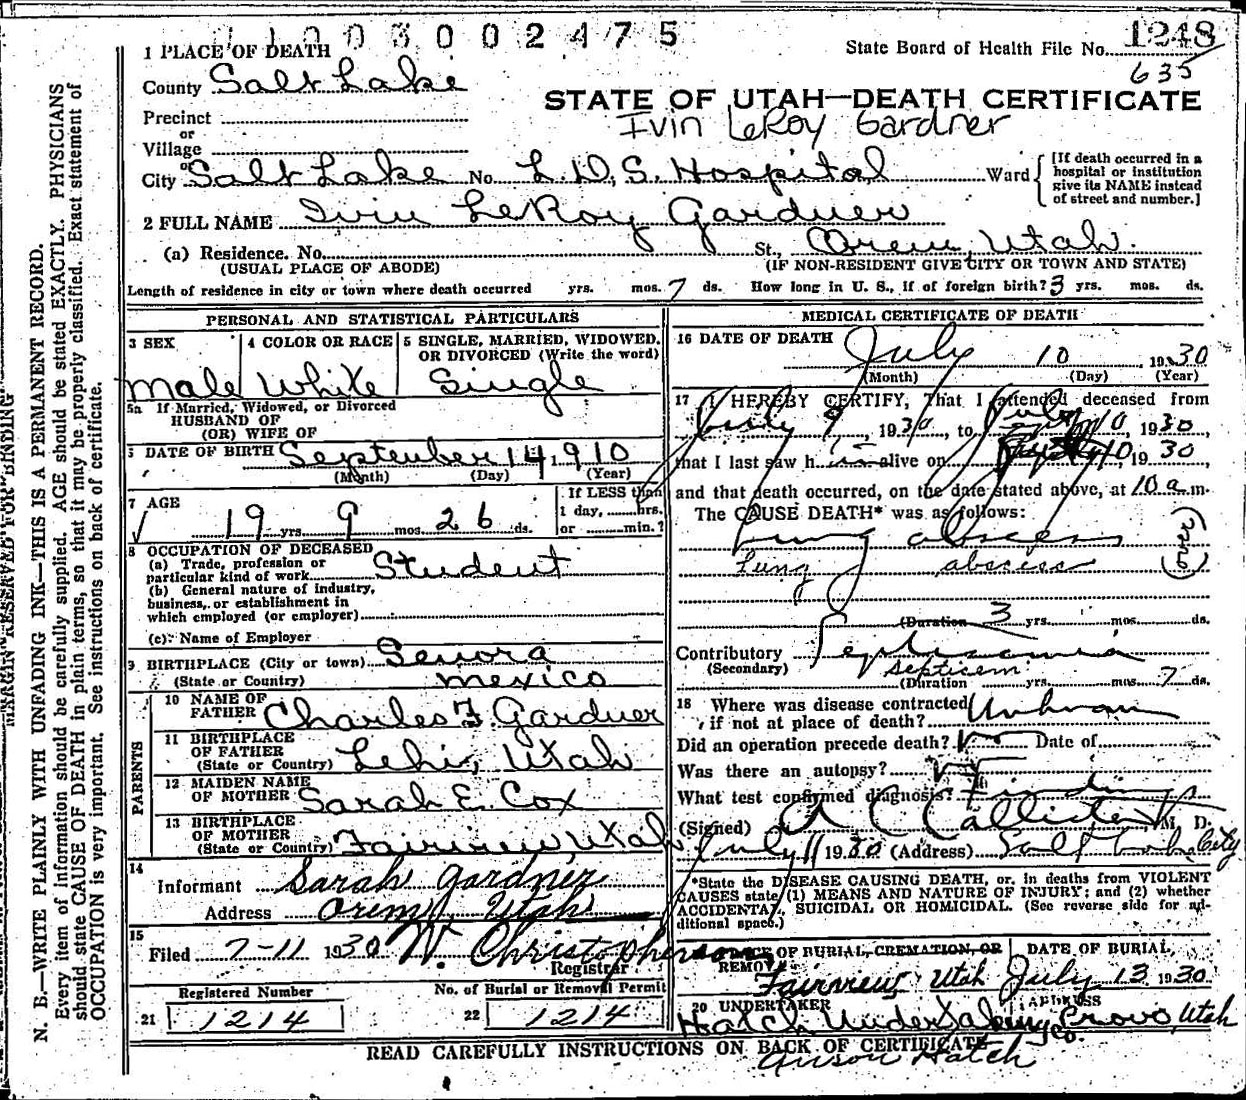 003002475
1 PLACE OF DEATH
State Board of Health File No. 1248
635
County Salt Lake
STATE OF UTAH—DEATH CERTIFICATE
Precinct
Ivin LeRoy Gardner
or
Village
or
City Salt Lake No. L.D.S. Hospital Ward
[If death occurred in a hospital or institution give its NAME instead of street and number.]
2 FULL NAME Ivin LeRoy Gardner
(a) Residence. No. St., Orem, Utah.
(USUAL PLACE OF ABODE) (IF NON-RESIDENT GIVE CITY OR TOWN AND STATE)
Length of residence in city or town where death occurred yrs. mos. 7 ds. How long in U. S., if of foreign birth? 3 yrs. mos. ds.
PERSONAL AND STATISTICAL PARTICULARS
3 SEX 4 COLOR OR RACE 5 SINGLE, MARRIED, WIDOWED, OR DIVORCED (Write the word)
Male White Single
5a If Married, Widowed, or Divorced
HUSBAND OF
(OR) WIFE OF
6 DATE OF BIRTH September 14 1910
(Month) (Day) (Year)
7 AGE If LESS than
1 day, hrs.
19 yrs. 9 mos. 26 ds. or min.?
8 OCCUPATION OF DECEASED
(a) Trade, profession or
particular kind of work Student
(b) General nature of industry,
business, or establishment in
which employed (or employer)
(c) Name of Employer
9 BIRTHPLACE (City or town) Senora
(State or Country) Mexico
PARENTS
10 NAME OF
FATHER Charles F. Gardner
11 BIRTHPLACE
OF FATHER
(State or Country) Lehi, Utah
12 MAIDEN NAME
OF MOTHER Sarah E. Cox
13 BIRTHPLACE
OF MOTHER
(State or Country) Fairview, Utah
14
Informant Sarah Gardner
Address Orem, Utah
15
Filed 7-11 1930 W. Christopherson
Registrar
Registered Number No. of Burial or Removal Permit
21 1214 22 1214
MEDICAL CERTIFICATE OF DEATH
16 DATE OF DEATH July 10 1930
(Month) (Day) (Year)
17 I HEREBY CERTIFY, That I attended deceased from
July 9, 1930, to July 10, 1930
that I last saw him alive on 10, 1930,
and that death occurred, on the date stated above, at 10 a m.
The CAUSE DEATH* was as follows:
Lung abscess
Lung abscess (over)
(Duration 3 yrs. mos. ds.
Contributory Septicemia
(Secondary) Septicem
(Duration yrs. mos. 7 ds.
18 Where was disease contracted
if not at place of death? Unknown
Did an operation precede death? Date of
Was there an autopsy?
What test confirmed diagnosis?
(Signed) A C Callister M. D.
July 11 1930 (Address) Salt Lake City
*State the DISEASE CAUSING DEATH, or, in deaths from VIOLENT
CAUSES state (1) MEANS AND NATURE OF INJURY; and (2) whether
ACCIDENTAL, SUICIDAL OR HOMICIDAL. (See reverse side for ad-
ditional space.)
OF BURIAL, CREMATION, OR DATE OF BURIAL,
REMOVAL Fairview Utah July 13 1930
20 UNDERTAKER ADDRESS
Hatch Undertaking Co. Provo, Utah
READ CAREFULLY INSTRUCTIONS ON BACK OF CERTIFICATE
Anson Hatch
MARGIN RESERVED FOR BINDING
N. B.—WRITE PLAINLY WITH UNFADING INK—THIS IS A PERMANENT RECORD.
Every item of information should be carefully supplied. AGE should be stated EXACTLY. PHYSICIANS
should state CAUSE OF DEATH in plain terms, so that it may be properly classified. Exact statement of
OCCUPATION is very important. See instructions on back of certificate.